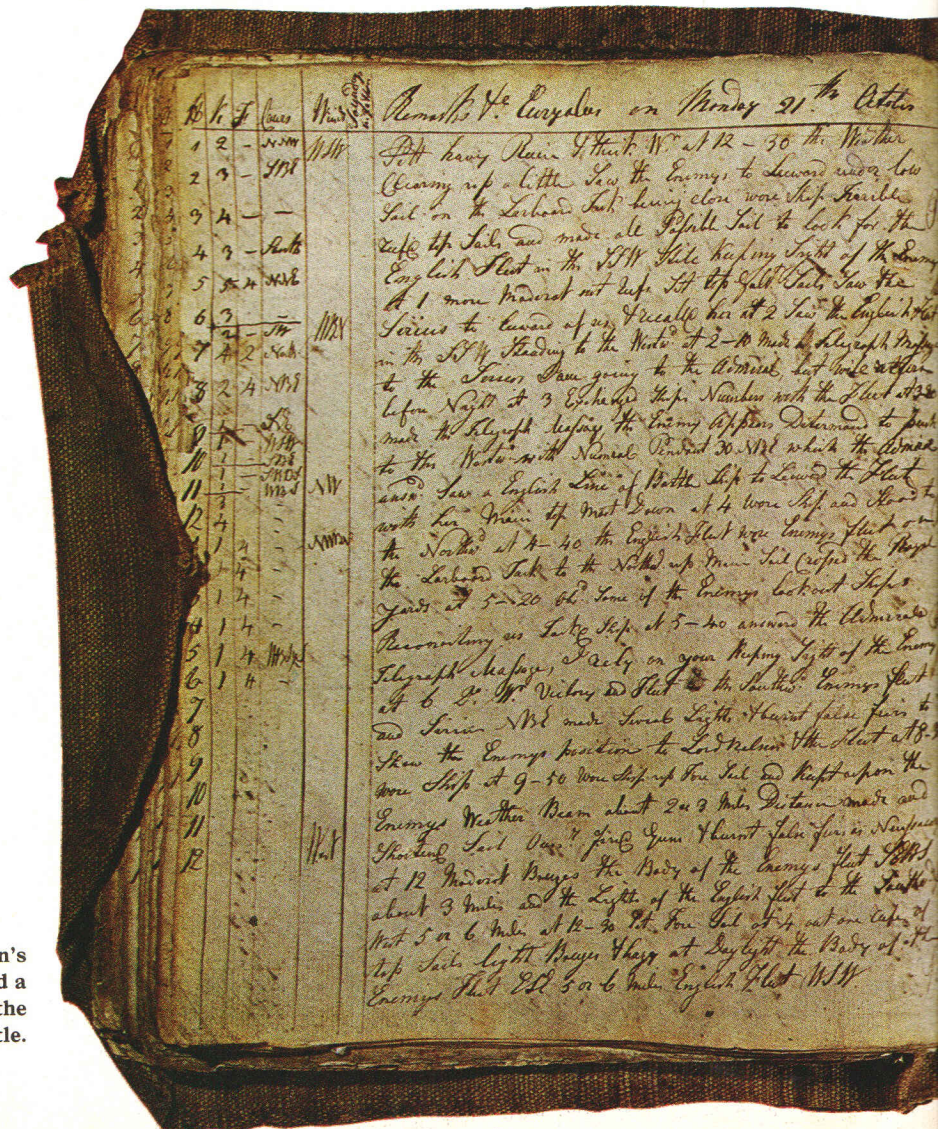 H K F Cours Wind Remarks &c Euryalus on Monday 21th Octobr
1 2 - NNW WSW
2 3 - SBE
3 4 - -
4 3 - South
5 5 4 NNE
6 3 -
2 - SW WBS
7 4 2 North
8 2 4 NBE
9
10
11 NW
12 4 -
1 4 -
1 4 -
1 4 -
4 1 4 -
5 1 4
6 1 4 -
7
8
9
10
11
12 West
heavy Rain & thick Wr at 12-30 the Weather
Clearing up a little Saw the Enemys to Leeward under low
Sail on the Larboard Tack being close wore Ship
top Sails and made all Possible Sail to look for the
English Fleet in the SSW Still Keeping Sight of the Enemy
At 1 more Moderat out Reefs Sett top Galt Sails Saw the
Sirius to Leeward of us & recalld her at 2 Saw the English Fleet
in the SSW Standing to the Westwd at 2-10 made a Telegraph Message
to the Sirius I am going to the Admiral but will return
before Night At 3 Exchanged Ships Numbers with the Fleet at
made the Telegraph Message the Enemy Appears Determand to push
to the Westwd with Numeral Pendant 30 NBE which the Admiral
answd Saw a English Line of Battle Ship to Leeward the Fleet
with her Main top Mast Down at 4 wore Ship and Stood to
the Northwd at 4-40 the English Fleet wore Enemys fleet on
the Larboard Tack to the Northd up Main Sail Crossed the Royal
yards at 5-20 obd Some of the Enemys lookout Ships
Reconnoitring us Tackd Ship At 5-40 answerd the Admirals
Telegraph Message, I rely on your Keeping Sight of the Enemy
at 6 Do Wr Victory and Fleet to the Southwd Enemys fleet
and Sirius NBE made Several Lights & burnt false fires to
Shew the Enemys position to Lord Nelson & the Fleet at 8-
wore Ship at 9-50 Wore Ship up Fore Sail and Kept upon the
Enemys Weather Beam about 2 or 3 Miles Distance made and
Shortend Sail Occy Fired Guns & burnt false fires as Necessary
at 12 Moderat Breezes the Body of the Enemys fleet
about 3 Miles and the Lights of the English fleet to the South
West 5 or 6 Miles at 12-30 Fore Sail at 4 out one Reef of
top Sails light Breezes & hazy at Daylight the Body of the
Enemys Fleet ESE 5 or 6 Miles English Fleet WSW
n's
d a
the
tle.